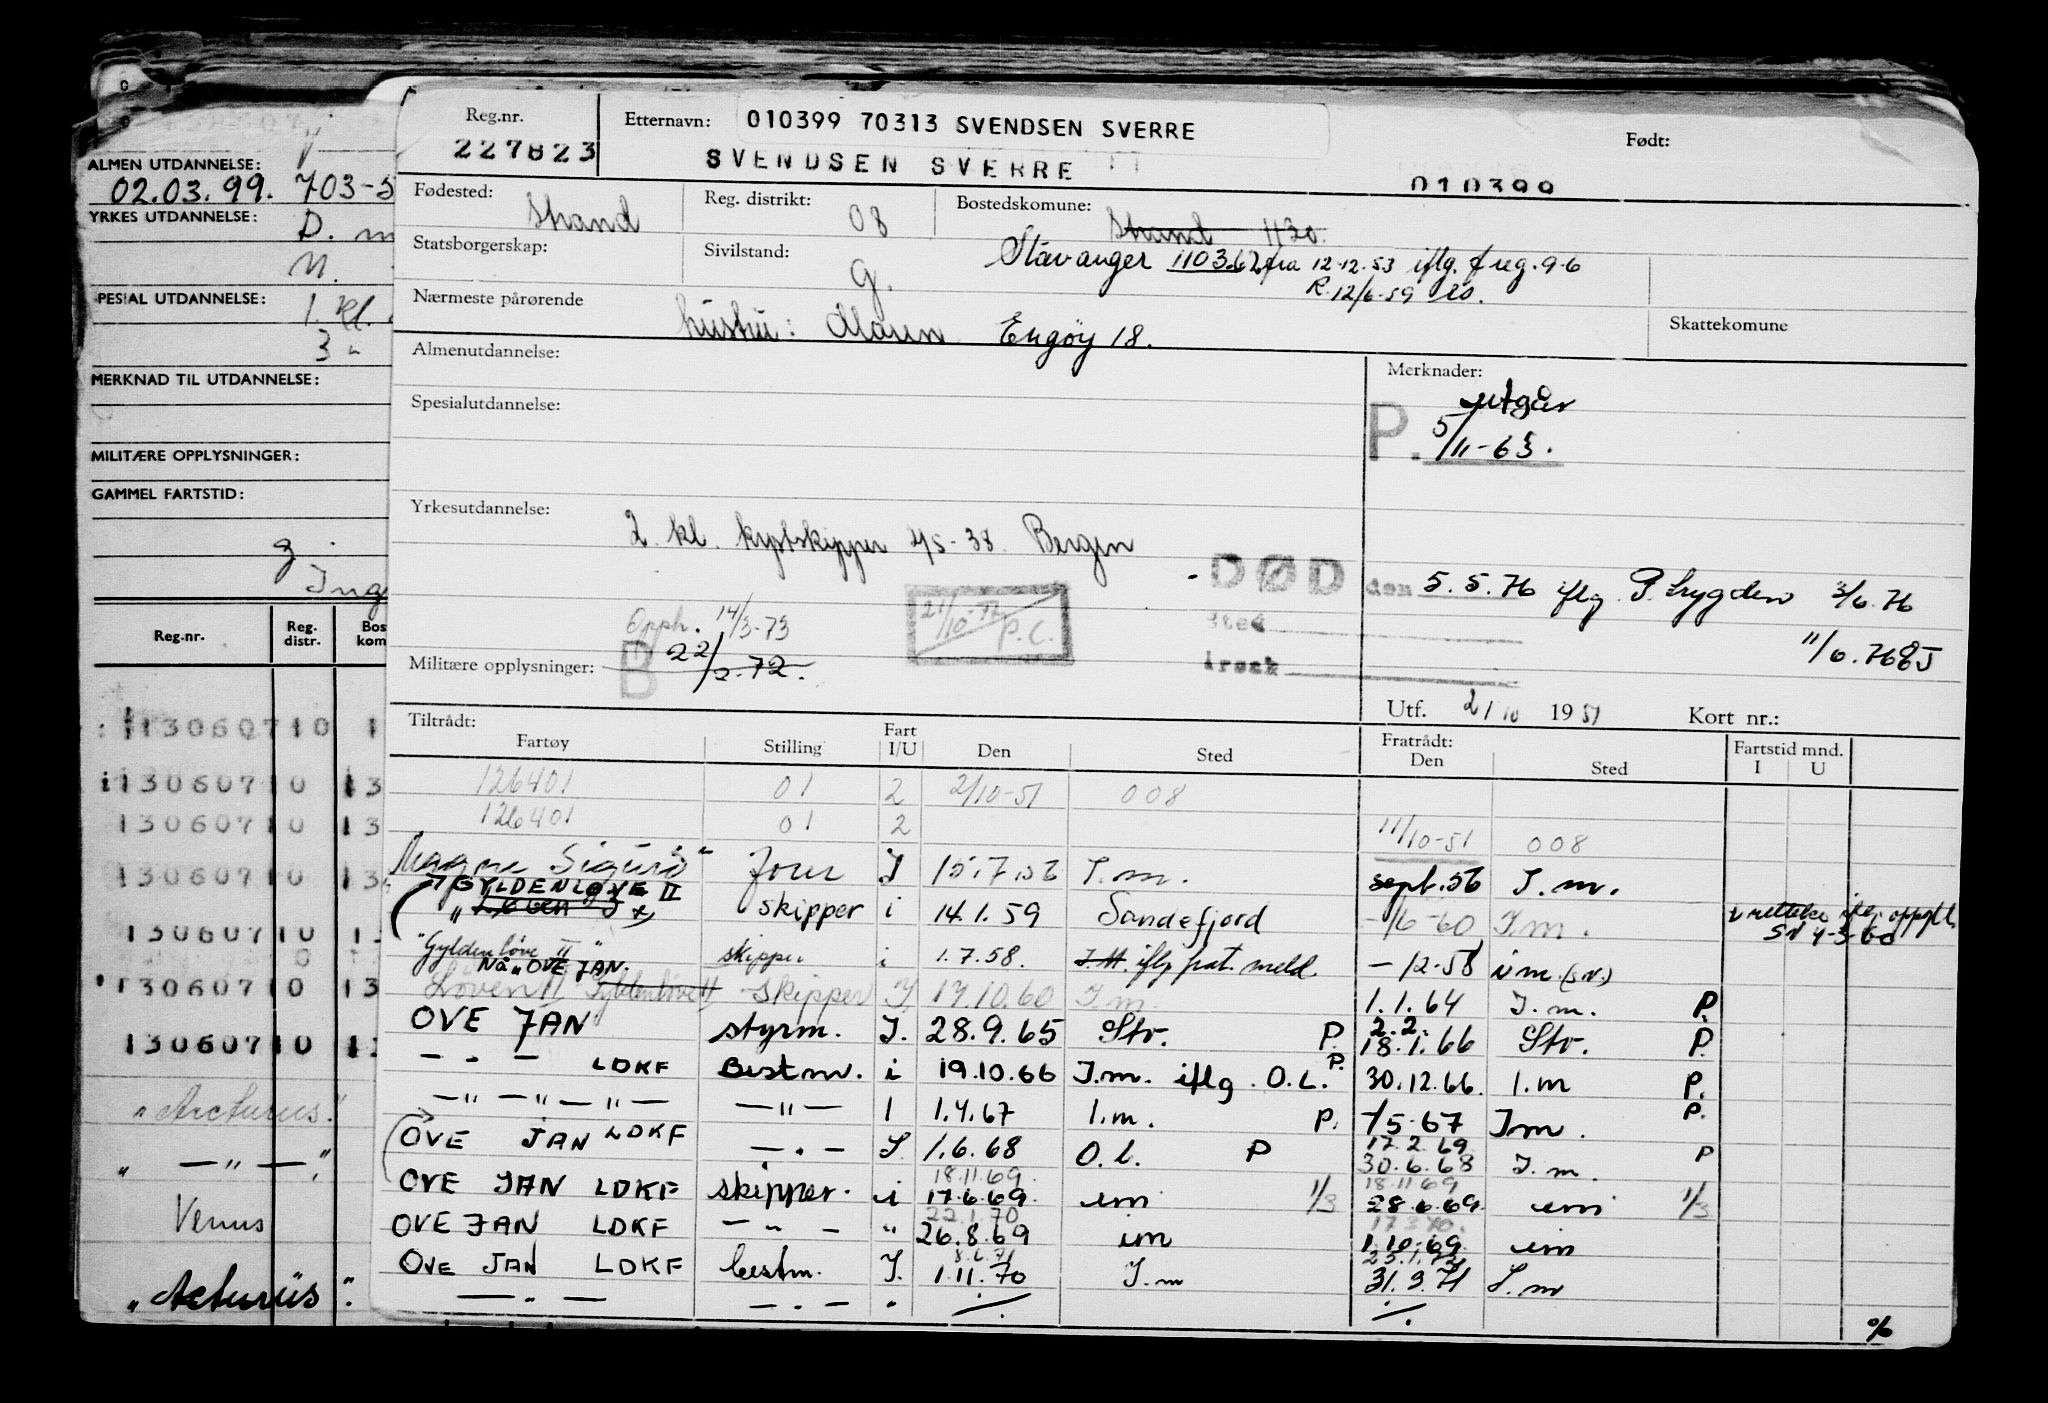 Reg.nr.
227823
Etternavn: 010399 70313 SVENDSEN SVERRE
SVENDSEN SVERRE
Født:
010399
Fødested: Strand
Reg. distrikt: 08
Bostedskomune: Strand 1130.
Statsborgerskap:
Sivilstand: g.
Stavanger 1103.62 fra 12-12.53 iflg. freg. 9-6
R. 12/6-59
Nærmeste pårørende
hustru: Maren Engøy 18.
Skattekomune
Almenutdannelse:
Merknader:
utgår
P. 5/11-63.
Spesialutdannelse:
Yrkesutdannelse:
2. kl. kystskipper 4/5-38. Bergen
DØD den 5.5.76 iflg. P. trygden 3/6.76
Sted
Årsak
11/6.76
Opph. 14/3-73
21/10-71 P.C.
Militære opplysninger: B 22/2-72.
Utf. 2/10 1951 Kort nr.:
Tiltrådt:
Fartøy Stilling Fart I/U Den Sted
Fratrådt: Den Sted
Fartstid mnd. I U
126401 01 2 2/10-51 008
126401 01 2 11/10-51 008
Magne Sigurd" I 15.7.56 I.m. sept.56 I.m.
GYLDENLØVE II
skipper i 14.1.59 Sandefjord -/6-60 I.m.
"Gyldenløve II" skipper i 1.7.58. I.M. iflg frat. meld. - 12-58 im (s.v.)
Nå "OVE JAN.
Løven II Gyldenløve II skipper I 17.10.60 I.m. 1.1.64 I.m. P.
OVE JAN styrm. I. 28.9.65 Stv. P. 2.2. 18.1.66 Stv. P.
— " — LDKF Bestm. i 19.10.66 I.m. iflg. O.L. P. 30.12.66. I.m P.
— " — " — " — — " — I 1.4.67 I.m. P. -/5-67 Im. P.
OVE JAN LDKF — " — I 1.6.68 O.l. P 17.2.69 30.6.68 I.m. P
18.11.69 18.11 69
OVE JAN LDKF skipper. i 17.6.69. im 1/3 28.6.69. im 1/3
22.1.70 17.3.70.
OVE JAN LDKF — " — " 26.8.69 im 1.10.69 im
8.6.71 25.1.72
OVE JAN LDKF bestm. I. 1.11.70 I.m 31.3.71 I.m
— " — — " — " ./. ./.
%
ALMEN UTDANNELSE:
02.03.99. 703-5
YRKES UTDANNELSE:
D. m
N.
PESIAL UTDANNELSE:
1. kl.
3 "
MERKNAD TIL UTDANNELSE:
MILITÆRE OPPLYSNINGER:
GAMMEL FARTSTID:
g.
Ing
Reg.nr. Reg. distr. Bos kom
113060710 1
113060710 13
13060710 13
13060710 13
13060710 1
13060710 13
13060710 1
"Arcturus".
" — " — "
Venus
"Acturus".